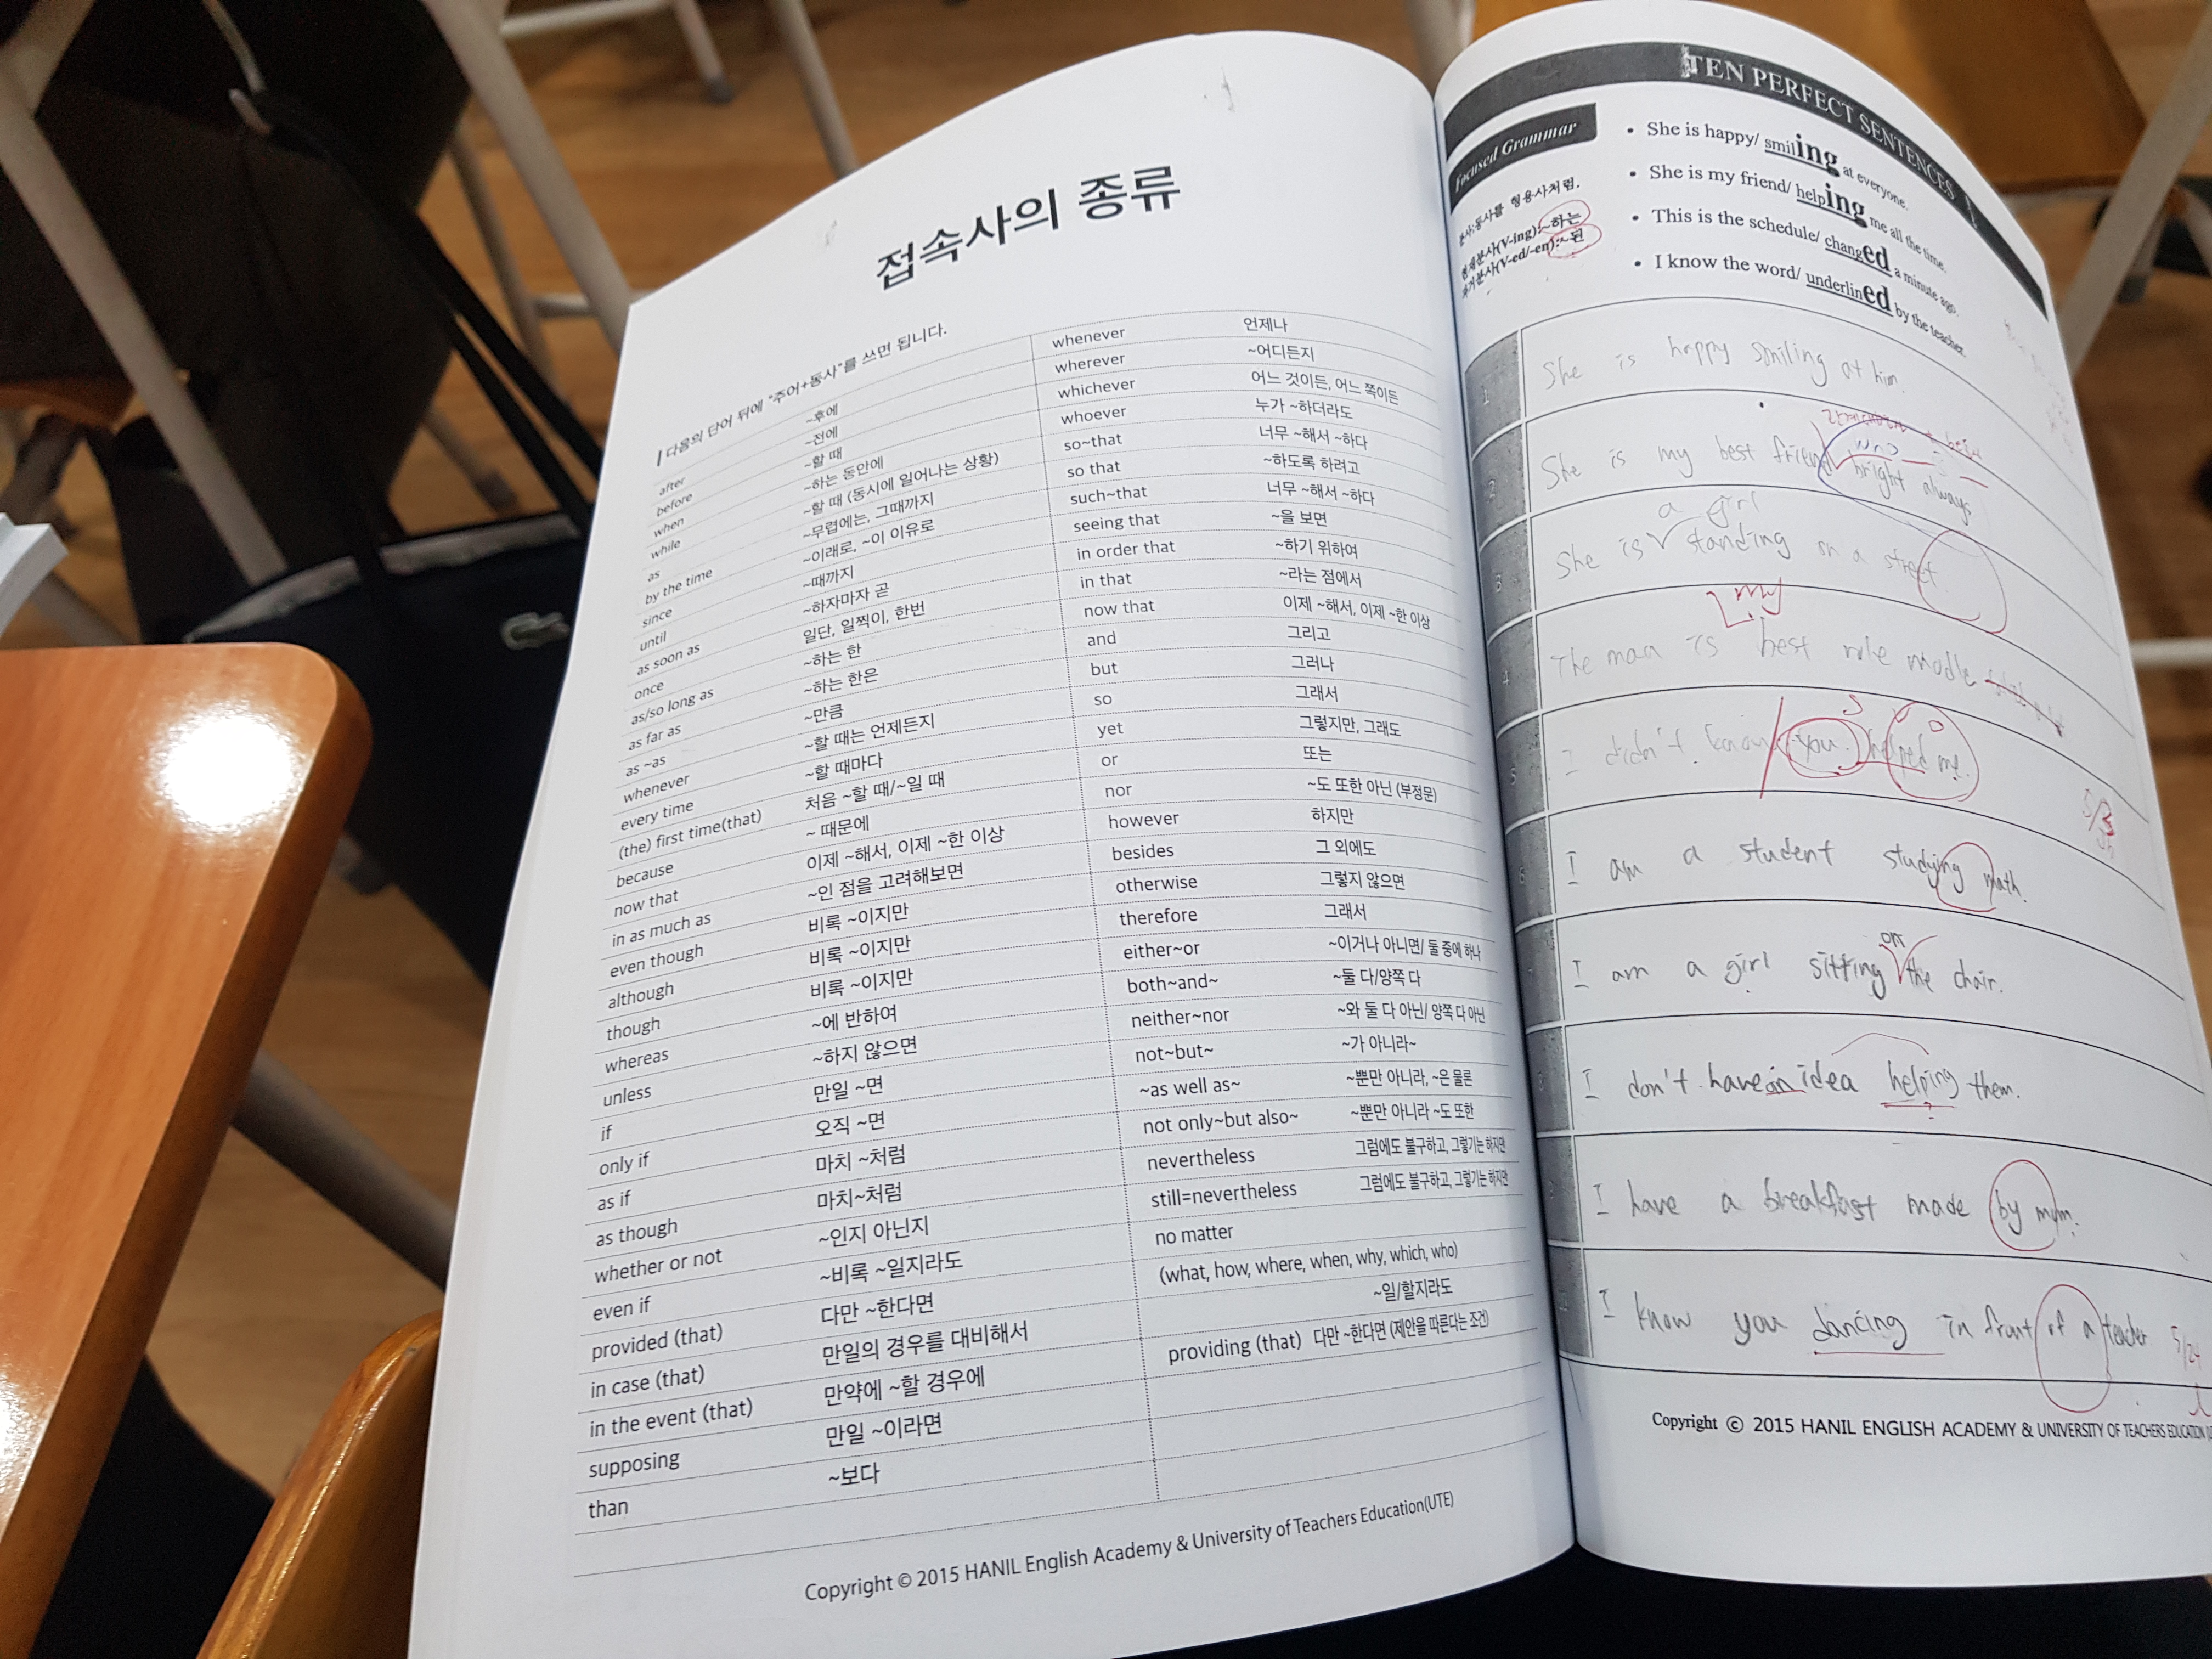 접속사의 종류
다음의 단어 뒤에 "주어+동사"를 쓰면 됩니다.
after ~후에
before ~전에
when ~할 때
while ~하는 동안에
as ~할 때 (동시에 일어나는 상황)
by the time ~무렵에는, 그때까지
since ~이래로, ~이 이유로
until ~때까지
as soon as ~하자마자 곧
once 일단, 일찍이, 한번
as/so long as ~하는 한
as far as ~하는 한은
as ~as ~만큼
whenever ~할 때는 언제든지
every time ~할 때마다
(the) first time(that) 처음 ~할 때/~일 때
because ~ 때문에
now that 이제 ~해서, 이제 ~한 이상
in as much as ~인 점을 고려해보면
even though 비록 ~이지만
although 비록 ~이지만
though 비록 ~이지만
whereas ~에 반하여
unless ~하지 않으면
if 만일 ~면
only if 오직 ~면
as if 마치 ~처럼
as though 마치~처럼
whether or not ~인지 아닌지
even if ~비록 ~일지라도
provided (that) 다만 ~한다면
in case (that) 만일의 경우를 대비해서
in the event (that) 만약에 ~할 경우에
supposing 만일 ~이라면
than ~보다
whenever 언제나
wherever ~어디든지
whichever 어느 것이든, 어느 쪽이든
whoever 누가 ~하더라도
so~that 너무 ~해서 ~하다
so that ~하도록 하려고
such~that 너무 ~해서 ~하다
seeing that ~을 보면
in order that ~하기 위하여
in that ~라는 점에서
now that 이제 ~해서, 이제 ~한 이상
and 그리고
but 그러나
so 그래서
yet 그렇지만, 그래도
or 또는
nor ~도 또한 아닌 (부정문)
however 하지만
besides 그 외에도
otherwise 그렇지 않으면
therefore 그래서
either~or ~이거나 아니면/ 둘 중에 하나
both~and~ ~둘 다/양쪽 다
neither~nor ~와 둘 다 아닌/ 양쪽 다 아닌
not~but~ ~가 아니라~
~as well as~ ~뿐만 아니라, ~은 물론
not only~but also~ ~뿐만 아니라 ~도 또한
nevertheless 그럼에도 불구하고, 그렇기는 하지만
still=nevertheless 그럼에도 불구하고, 그렇기는 하지만
no matter
(what, how, where, when, why, which, who)
~일/할지라도
providing (that) 다만 ~한다면 (제안을 따른다는 조건)
Copyright © 2015 HANIL English Academy & University of Teachers Education(UTE)
TEN PERFECT SENTENCES
Focused Grammar
분사:동사를 형용사처럼.
현재분사(V-ing):~하는
과거분사(V-ed/-en):~된
• She is happy/ smiling at everyone.
• She is my friend/ helping me all the time.
• This is the schedule/ changed a minute ago.
• I know the word/ underlined by the teacher.
1 She is happy smiling at him.
who
2 She is my best friend bright always
a girl
3 She is standing on a street
my
4 The man is best role modle
S V O
5 I didn't know you helped me.
6 I am a student studying math.
on
7 I am a girl sitting the chair.
8 I don't have an idea helping them.
?
9 I have a breakfast made by mom.
10 I know you dancing in front of a teacher
5/24
Copyright © 2015 HANIL ENGLISH ACADEMY & UNIVERSITY OF TEACHERS EDUCATION